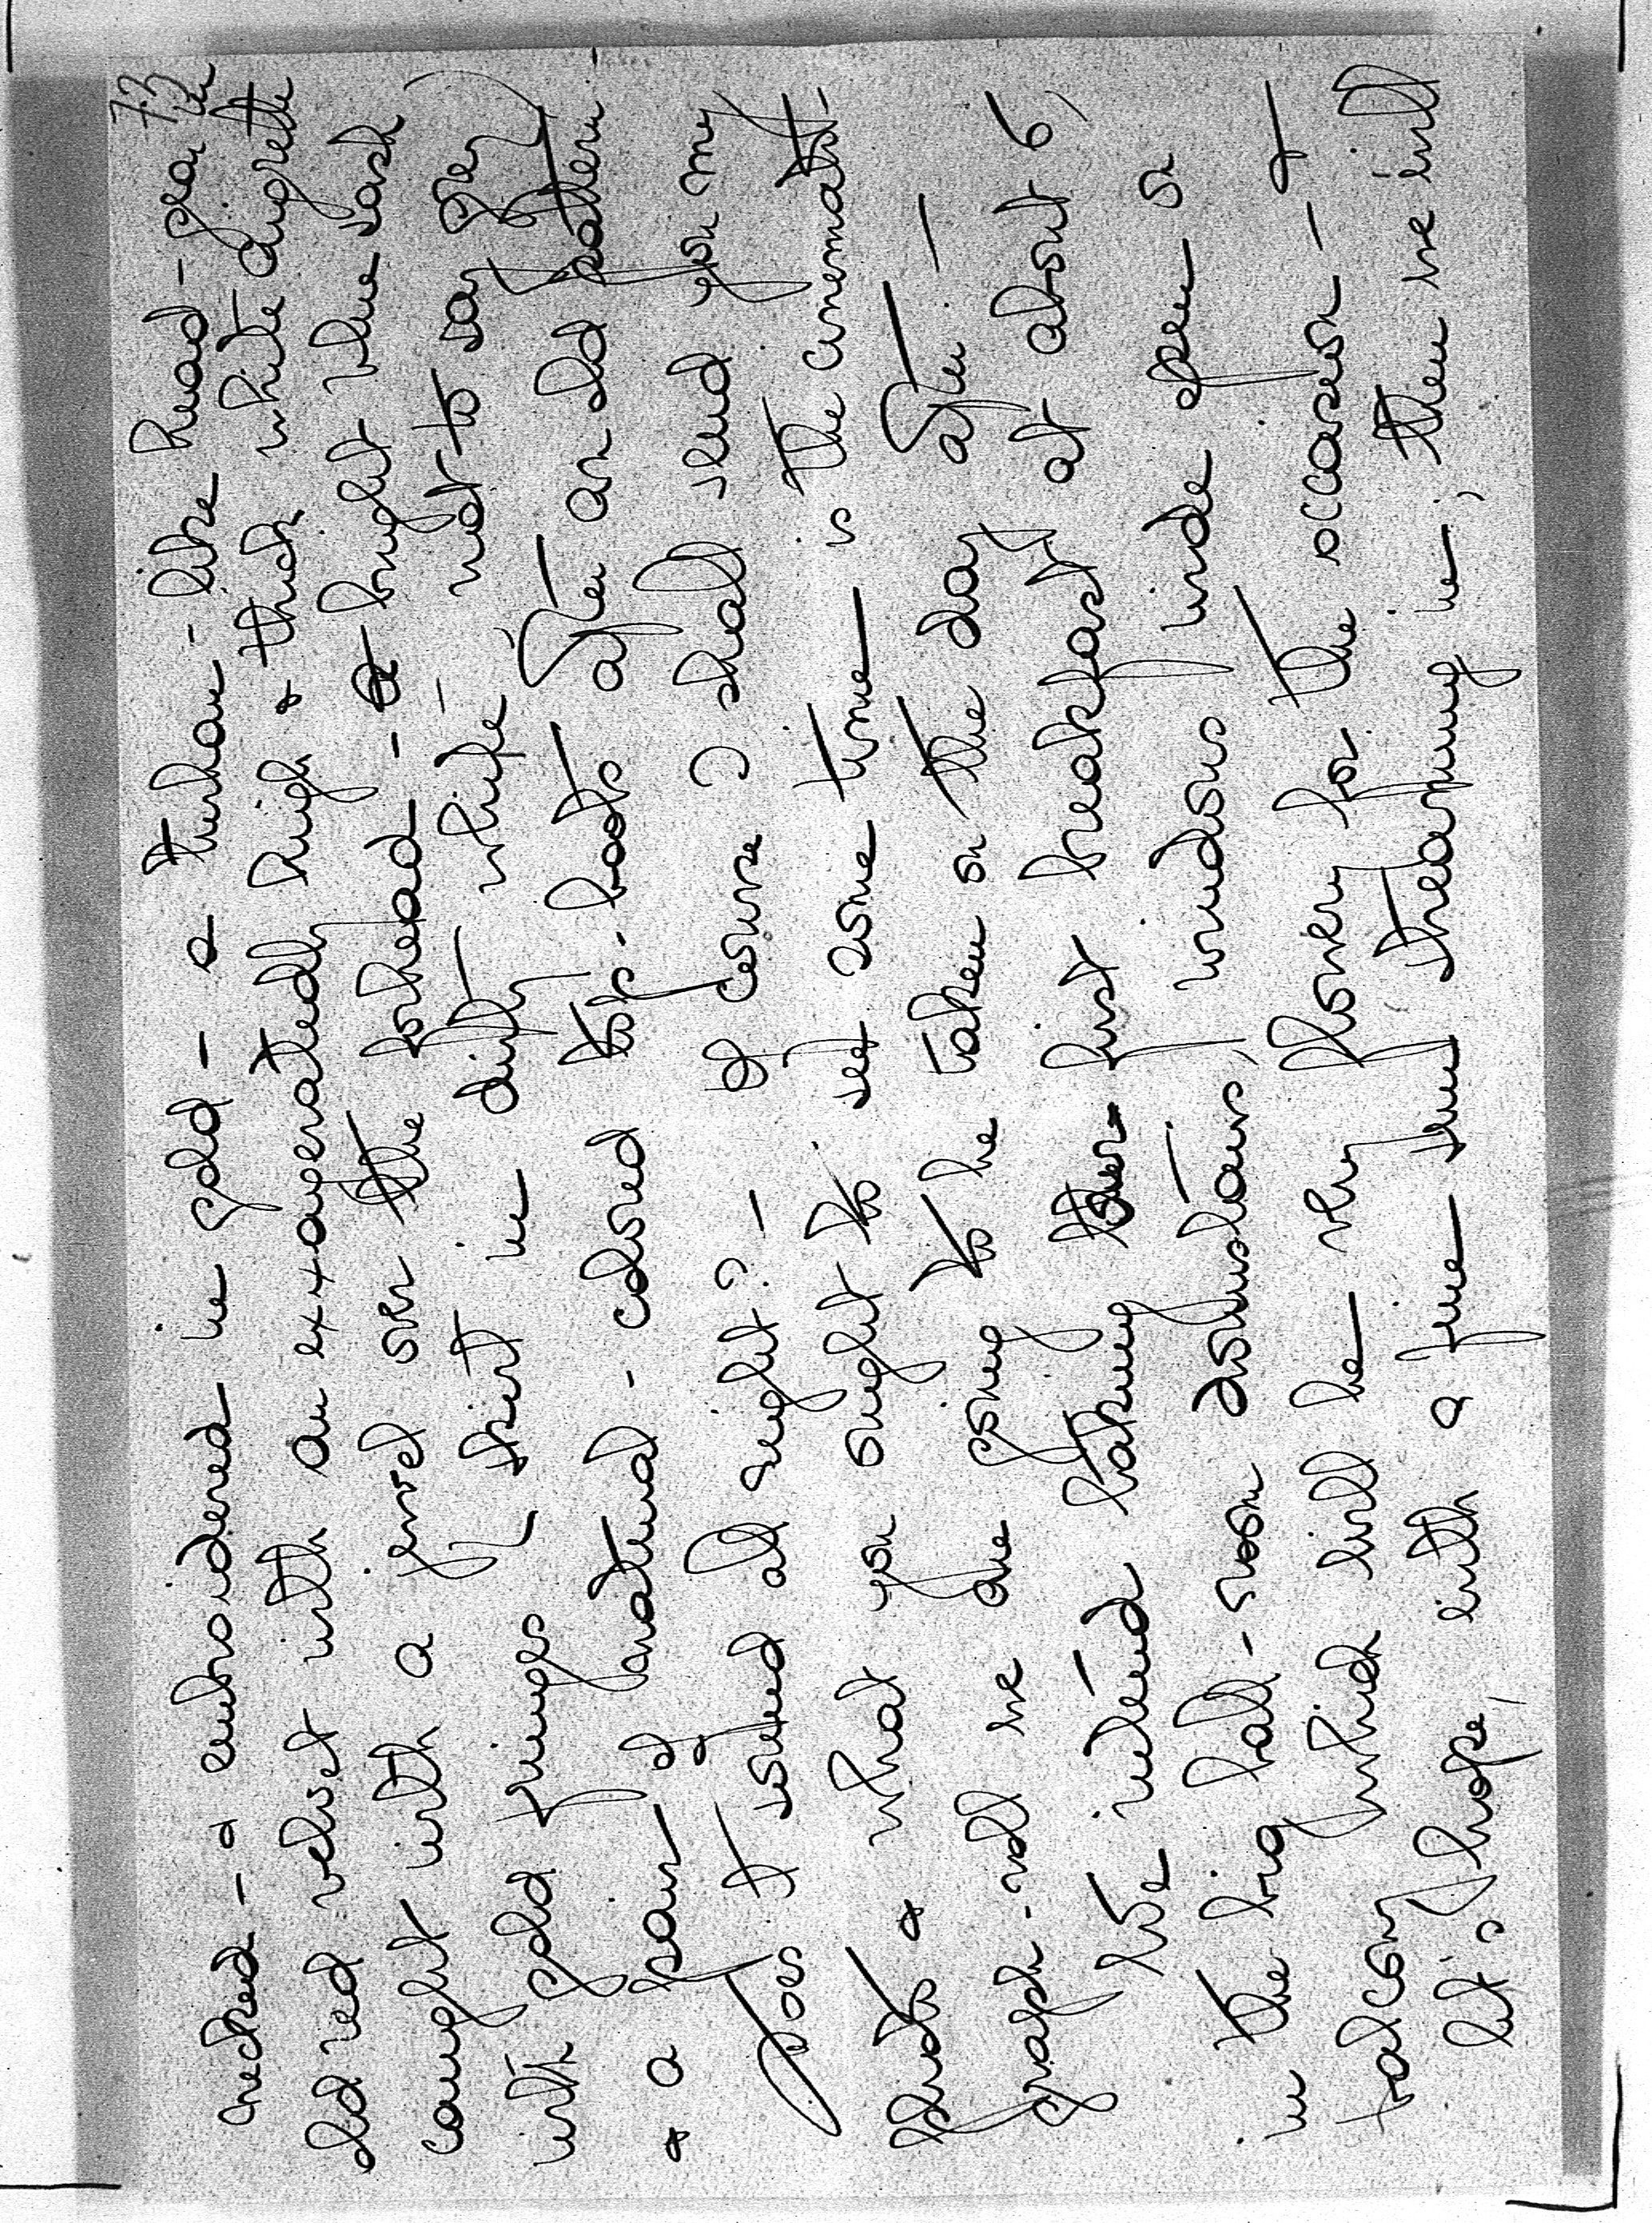 73
necked - a embroidered in gold - a turban-like head-gear in
old red velvet with an exxageratedly high & thick white aigrette
caught with a jewel over the forhead - a bright blue sash
with gold fringes & skirt in dirty white - not to say grey
& a pair of natural-colored top-boots after an old pattern.
Does it sound all right? - Of course I shall send you my
photo & what you ought to see some time is the cinemato-
graph-roll we are going to be taken on the day after. -
We intend taking our first breakfast at about 6,
in the big hall-room downstairs, windows wide open on
balcony which will be very flowery for the occasion - &
let's hope, with a fine sun streaming in; then we will